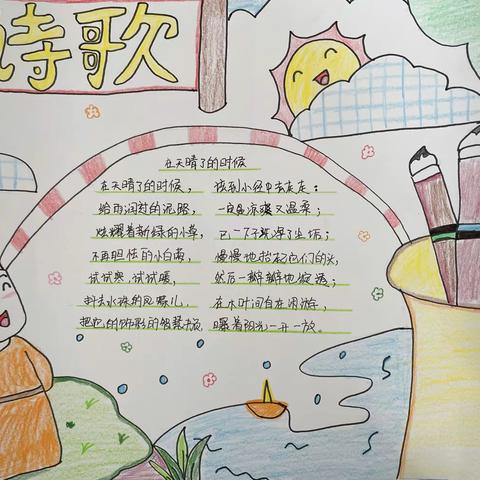 诗歌
在天晴了的时候
在天晴了的时候, 该到小径中去走走:
给雨润过的泥路, 一定是凉爽又温柔;
炫耀着新绿的小草, 已一下子洗净了尘垢;
不再胆怯的小白菊, 慢慢地抬起它们的头,
试试寒,试试暖, 然后一瓣瓣地绽透;
抖去水珠的凤蝶儿, 在木叶间自在闲游,
把它的饰彩的智慧书页, 曝着阳光一开一放。